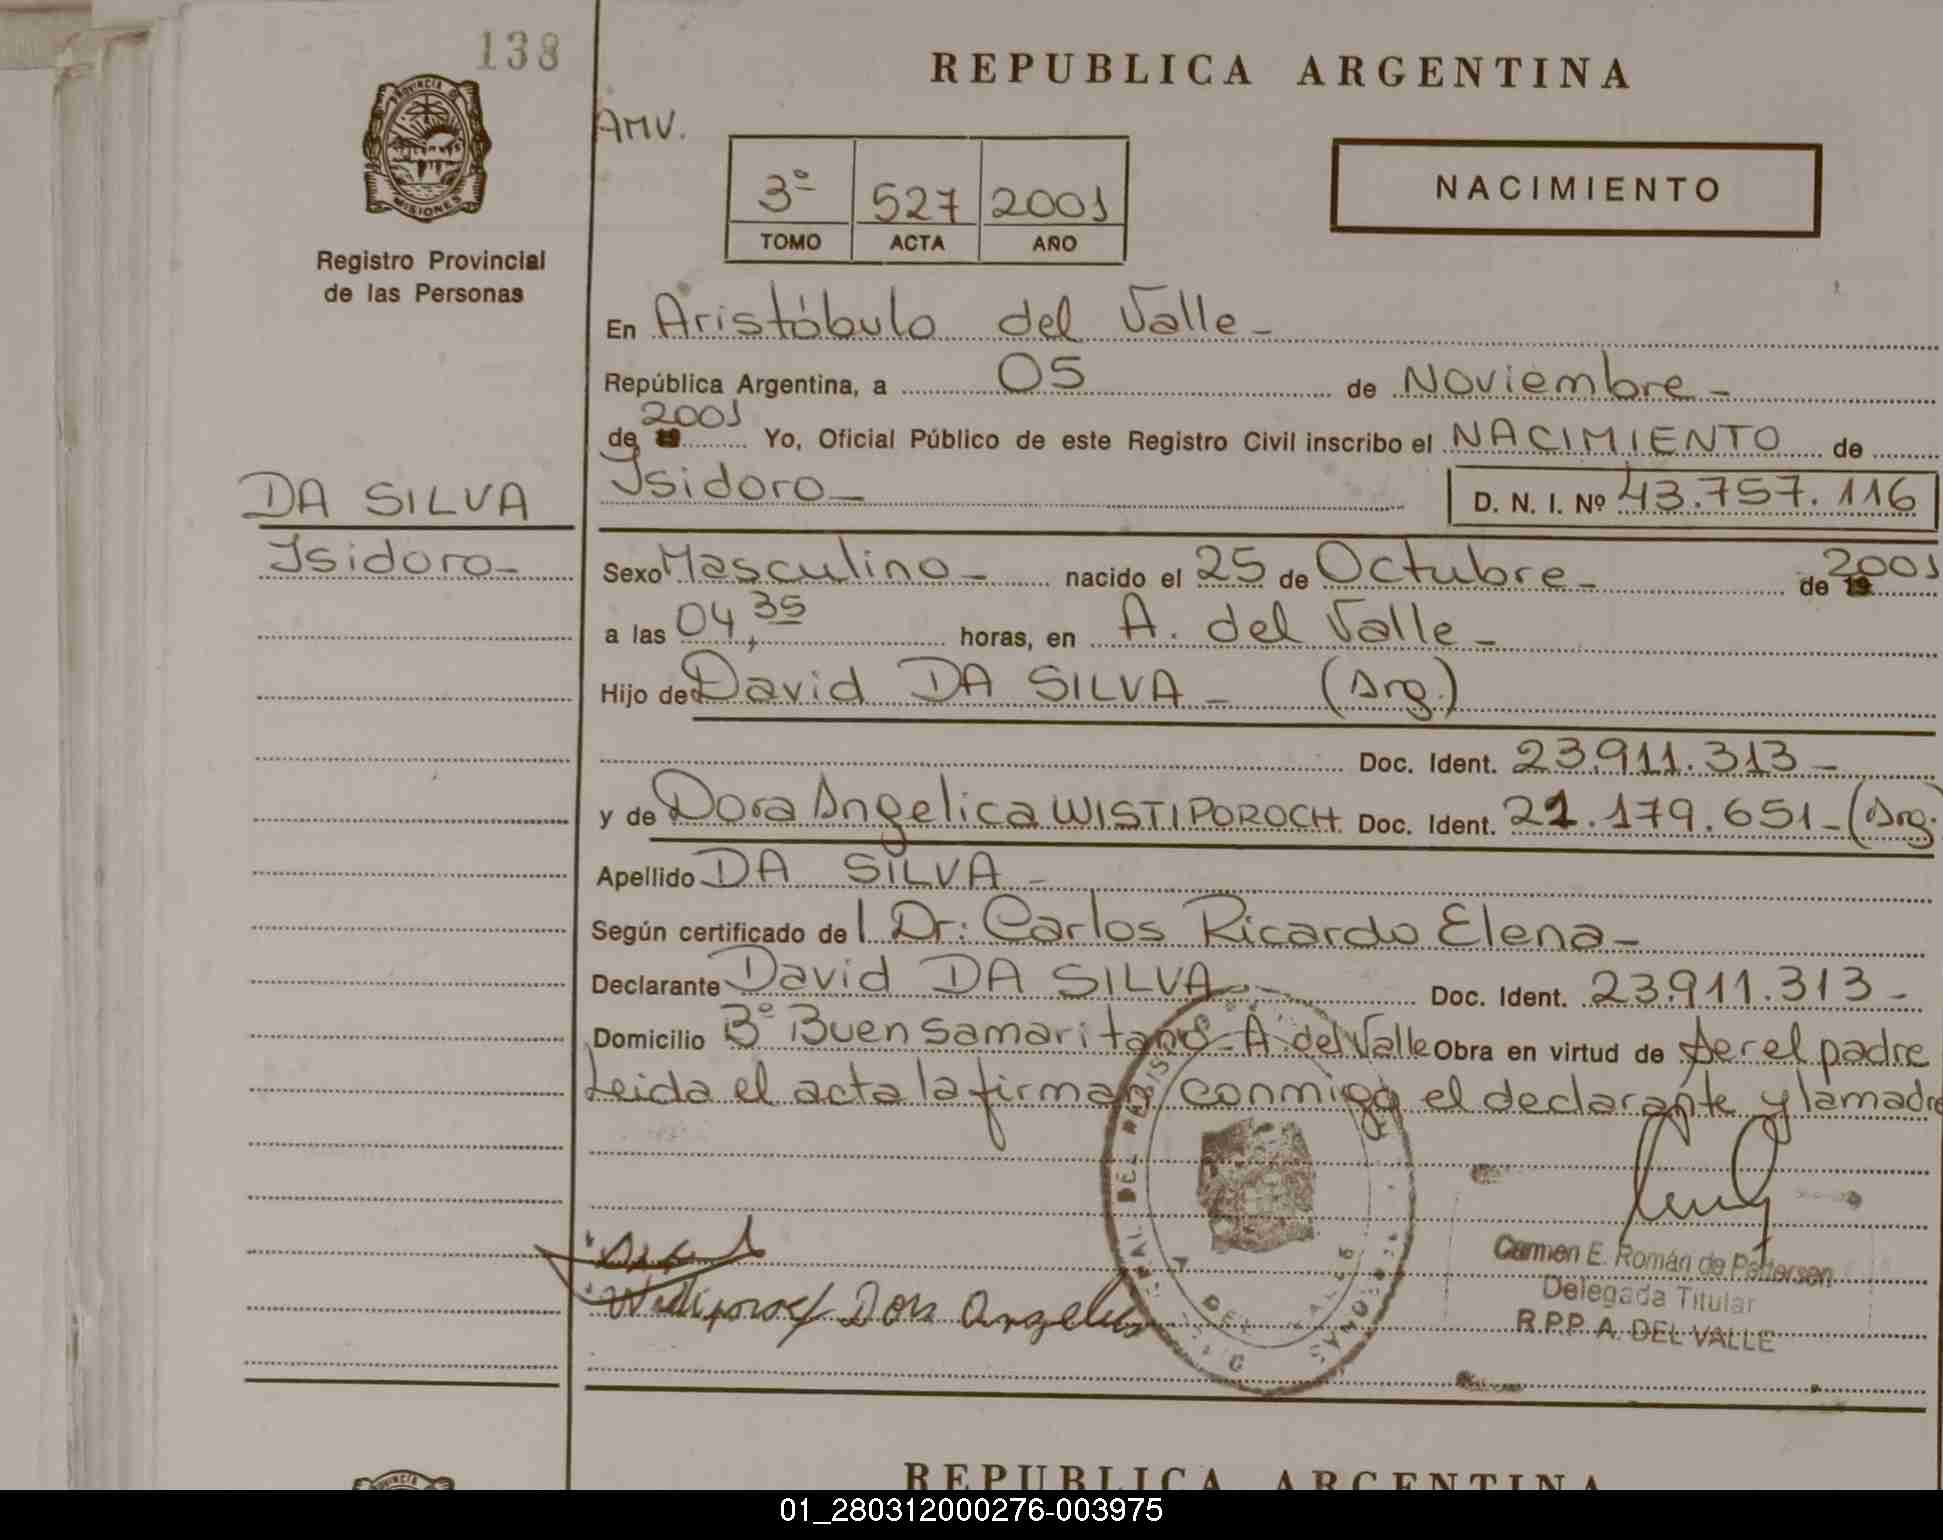 138
REPUBLICA ARGENTINA
PROVINCIA D
MISIONES
AMV.
3º 527 2001
TOMO ACTA AÑO
NACIMIENTO
Registro Provincial
de las Personas
En Aristóbulo del Valle -
República Argentina, a 05 de Noviembre -
de 19 2001 Yo, Oficial Público de este Registro Civil inscribo el NACIMIENTO de
DA SILVA
Isidoro -
Isidoro - D. N. I. Nº 43.757.116
Sexo Masculino - nacido el 25 de Octubre - de 19 2001
a las 04,35 horas, en A. del Valle -
Hijo de David DA SILVA - (Arg.)
Doc. Ident. 23.911.313 -
y de Dora Angelica WISTIPOROCH Doc. Ident. 21.179.651 - (Arg.
Apellido DA SILVA -
Según certificado del Dr: Carlos Ricardo Elena -
Declarante David DA SILVA - Doc. Ident. 23.911.313 -
Domicilio Bº Buen Samaritano - A. del Valle Obra en virtud de ser el padre
Leida el acta la firman conmigo el declarante y la madre
DEL
A. DEL VALLE
Dora Angelica
Carmen E. Román de Pettersen
Delegada Titular
R.P.P. A. DEL VALLE
PROVINCIA
REPUBLICA ARGENTINA
01_280312000276-003975